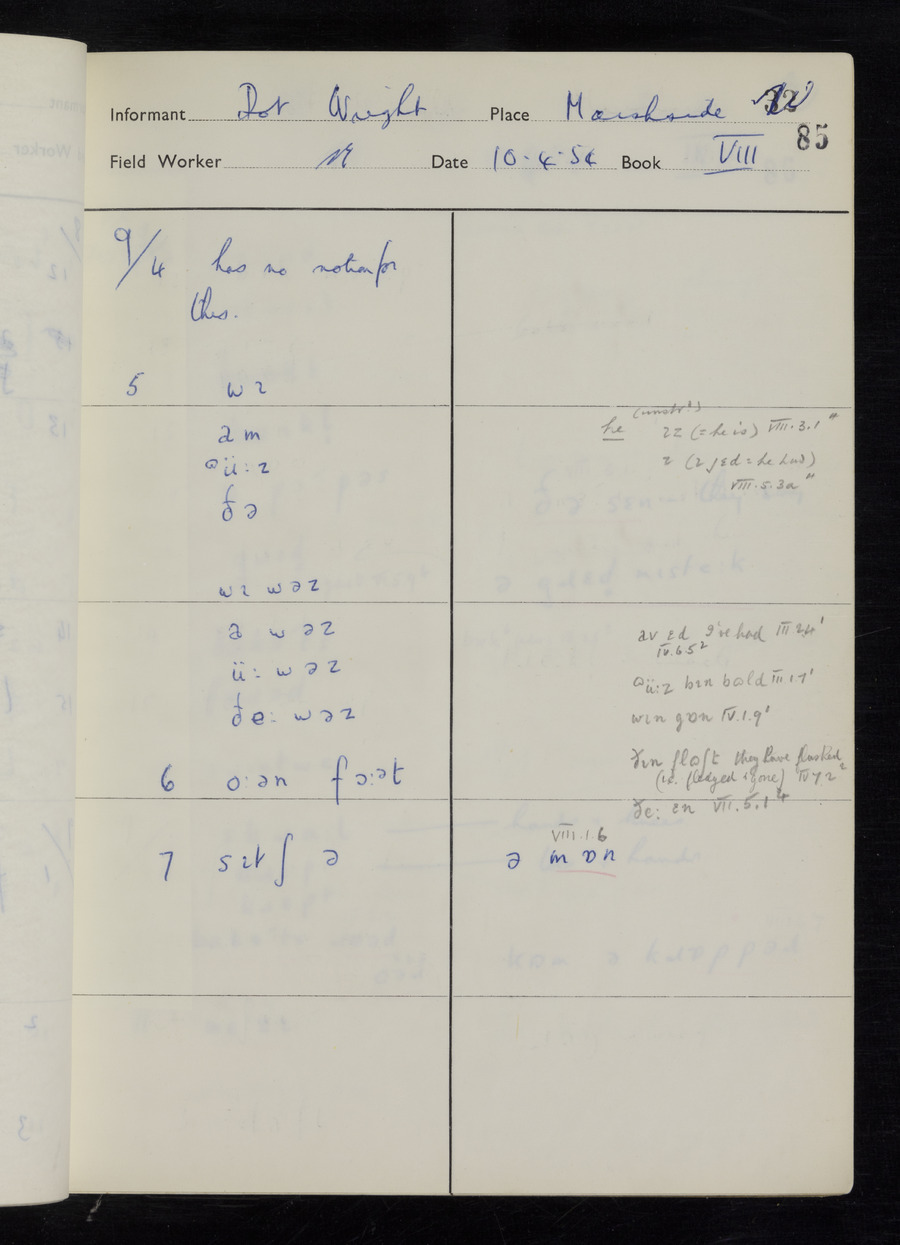 Informant Dot Wright Place Marshside
85
Field Worker Date 10.4.54 Book VIII
9/4 has no notion for
this.
5 wɪ
əm
ü:z
ðə
wɪ wəz
ə wəz
ü: wəz
ðe: wəz
6 o:ən fɔ:ət
7 sɪtʃ ə
he ɪz (= he is) VIII.3.1"
ɪ (ɪ jɛd = he had)
VIII.5.3a"
av ɛd I've had III.2.4'
IV.6.5²
ü:z bɪn bɒld III.1.7'
wɪn gɒn IV.1.9'
they have flusked
(i.e. fledged & gone) IV.7.2²
ðe: ɛn VII.5.1⁴
VIII.1.6
ə mɒn